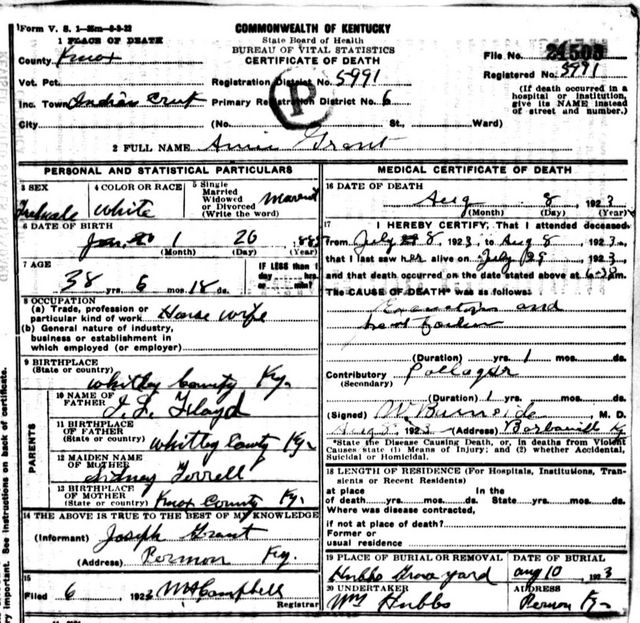 Form V. S. 1—35m—6-8-22
COMMONWEALTH OF KENTUCKY
State Board of Health
BUREAU OF VITAL STATISTICS
CERTIFICATE OF DEATH
1 PLACE OF DEATH
County Knox
Vot. Pct.
Inc. Town Indian Creek
City
Registration District No. 5991
Primary Registration District No. 6
P
(No. St., Ward)
File No. 21503
Registered No. 5991
(If death occurred in a
hospital or institution,
give its NAME instead
of street and number.)
2 FULL NAME Annie Grant
PERSONAL AND STATISTICAL PARTICULARS
3 SEX
4 COLOR OR RACE White
5 Single
Married
Widowed
or Divorced
(Write the word)
6 DATE OF BIRTH
Jan. 1 20
(Month) (Day) (Year)
7 AGE
38 yrs. 6 mos. 18 ds.
IF LESS than 1
day hrs.
or min?
8 OCCUPATION
(a) Trade, profession or
particular kind of work House wife
(b) General nature of industry,
business or establishment in
which employed (or employer)
9 BIRTHPLACE
(State or country) Whitley County Ky.
PARENTS
10 NAME OF
FATHER Floyd
11 BIRTHPLACE
OF FATHER
(State or country) Whitley County Ky
12 MAIDEN NAME
OF MOTHER Sidney Terrell
13 BIRTHPLACE
OF MOTHER
(State or country) Knox County Ky.
14 THE ABOVE IS TRUE TO THE BEST OF MY KNOWLEDGE
(Informant) Joseph Grant
(Address) Permon Ky.
15
Filed 6 1923 Campbell
Registrar
MEDICAL CERTIFICATE OF DEATH
16 DATE OF DEATH
Aug 8 1923
(Month) (Day) (Year)
17 I HEREBY CERTIFY, That I attended deceased
From July 8 1923, to Aug 8 1923.
that I last saw her alive on July 29 1923,
and that death occurred on the date stated above at m.
The CAUSE OF DEATH* was as follows:
and
(Duration) yrs. 1 mos. ds.
Contributory
(Secondary)
(Duration) 1 yrs. mos. ds.
(Signed) W Burnside, M. D.
1923 (Address) Barbourville Ky
*State the Disease Causing Death, or, in deaths from Violent
Causes state (1) Means of Injury; and (2) whether Accidental,
Suicidal or Homicidal.
18 LENGTH OF RESIDENCE (For Hospitals, Institutions, Transients
or Recent Residents)
at place In the
of death yrs. mos. ds. State yrs. mos. ds.
Where was disease contracted,
if not at place of death?
Former or
usual residence
19 PLACE OF BURIAL OR REMOVAL
Hubbs Grave yard
DATE OF BURIAL
Aug 10 1923
20 UNDERTAKER
Wm Hubbs
ADDRESS
Permon Ky
important. See instructions on back of certificate.